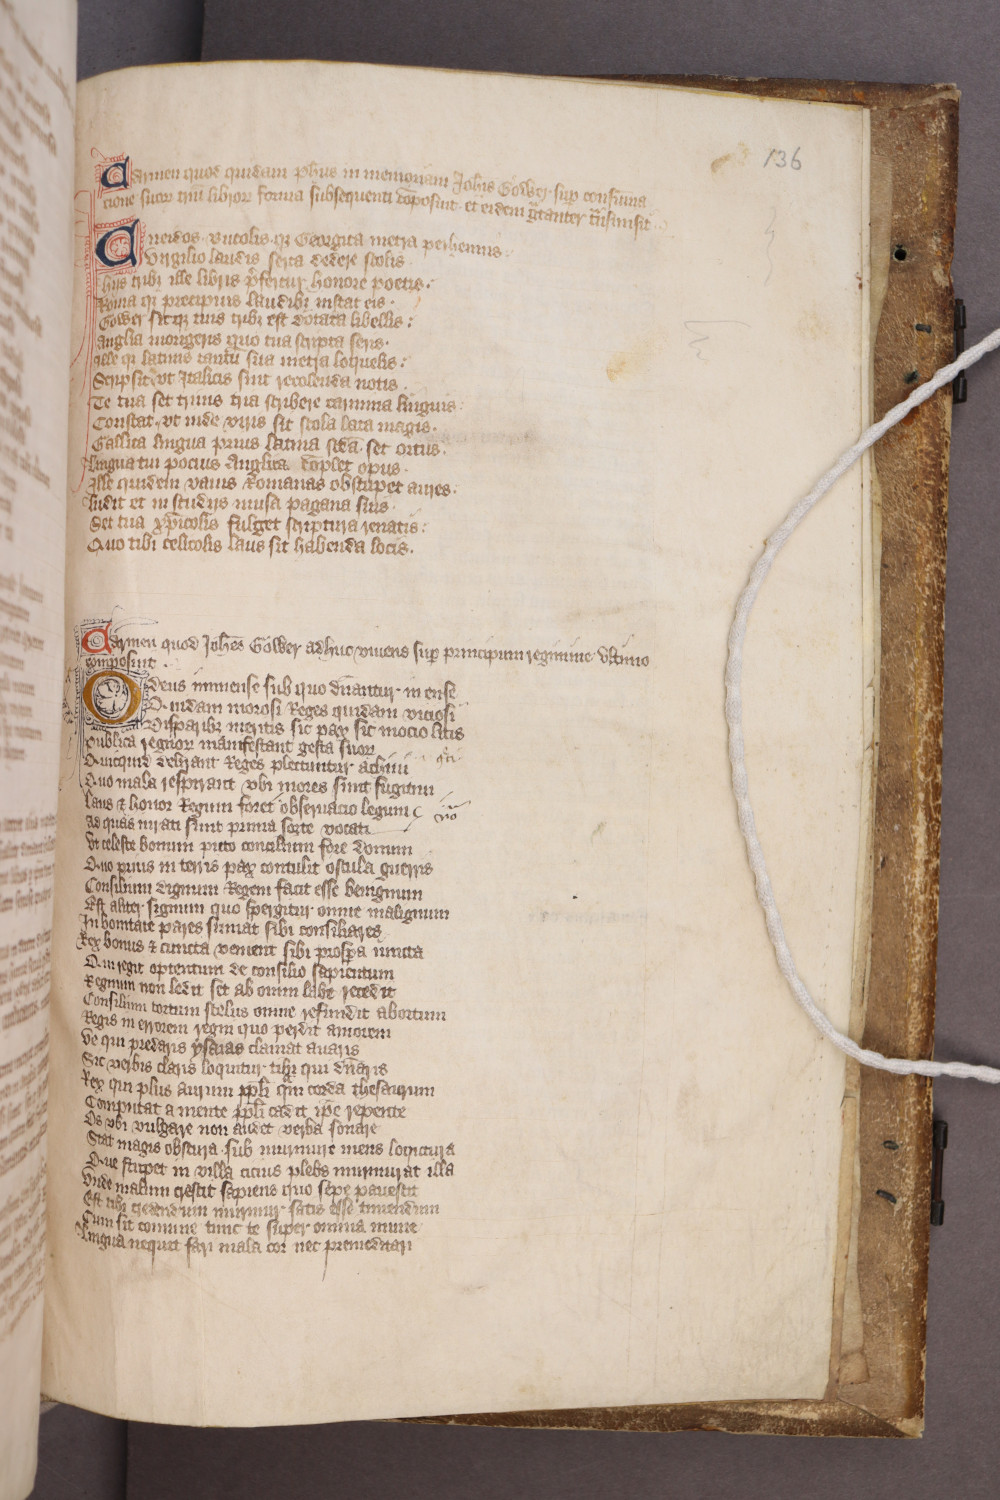 136
Carmen quod quidam phus in memoriam Johis Gower sup consuma
cione suor triu libror forma subsequenti coposuit et eidem gratanter transmisit
Eneidos Bucolis qz Georgica metra perhennis
Virgilio laudis serta dedere scolis
hiis tribz ille libris prefertur honore poetis
Roma qz precipuis laudibz instat eis
Gower sicqz tuis tribz est dotata libellis
Anglia morigeris quo tua scripta seris
Ille qz latinis tantu sua metra loquelis
Scripsit vt Italicis sint recolenda notis
Te tua set trinis tria scribere carmina linguis
Constat vt inde viris sit scola lata magis
Gallica lingua prius latina scda set ortus
lingua tui pocius Anglica coplet opus
Ille quidem vanis Romanas obstupet aures
ludit et in studiis musa pagana suis
Set tua xpicolis fulget scriptura renatis
Quo tibi celicolis laus sit habenda locis
Carmen quod Johes Gower adhuc viuens sup principum regimine vltimo
composuit
O deus immense sub quo dnantur in ense
Quidam morosi Reges quidam viciosi
Disparibz meritis sic pax sic mocio litis
Publica regnor manifestant gesta suor
Quicquid delirant Reges plectuntur achiui
Quo mala respirant vbi mores sunt fugitiui
laus & honor Regum foret obseruacio legum
Ad quas iurati sunt prima sorte vocati
Vt celeste bonum puto concilium fore donum
Quo prius in terris pax contulit oscula guerris
Consilium dignum Regem facit esse benignum
Est aliter signum quo spergitur omne malignum
In bonitate pares sumat sibi consiliares
Rex bonus & cuncta venient sibi prospa iuncta
Qui regit optentum de consilio sapientum
Regnum non ledit set ab omni labe recedit
Consilium tortum scelus omne refundit abortum
Regis in errorem regni quo perdit amorem
Ve qui predaris ysaias clamat auaris
Sic verbis claris loquitur tibi qui dnaris
Rex qui plus aurum ppli qm corda thesaurum
Computat a mente ppli cadit ipe repente
Os vbi vulgare non audet verba sonare
Stat magis obscura sub murmure mens locutura
Que stupet in villa cicius plebs murmurat illa
Vnde malum crescit sapiens quo sepe pauescit
Est tibi credendum murmur satis esse timendum
Cum sit comune tunc te super omnia mune
Lingua nequit fari mala cor nec premeditari